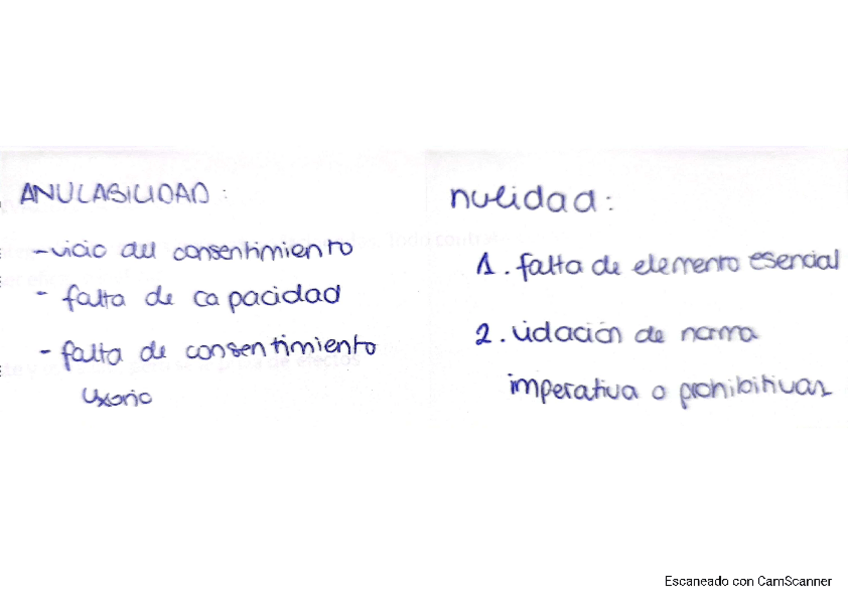 ANULABILIDAD:
- vicio del consentimiento
- falta de capacidad
- falta de consentimiento
uxorio
nulidad:
1. falta de elemento esencial
2. violación de norma
imperativa o prohibitivas
Escaneado con CamScanner